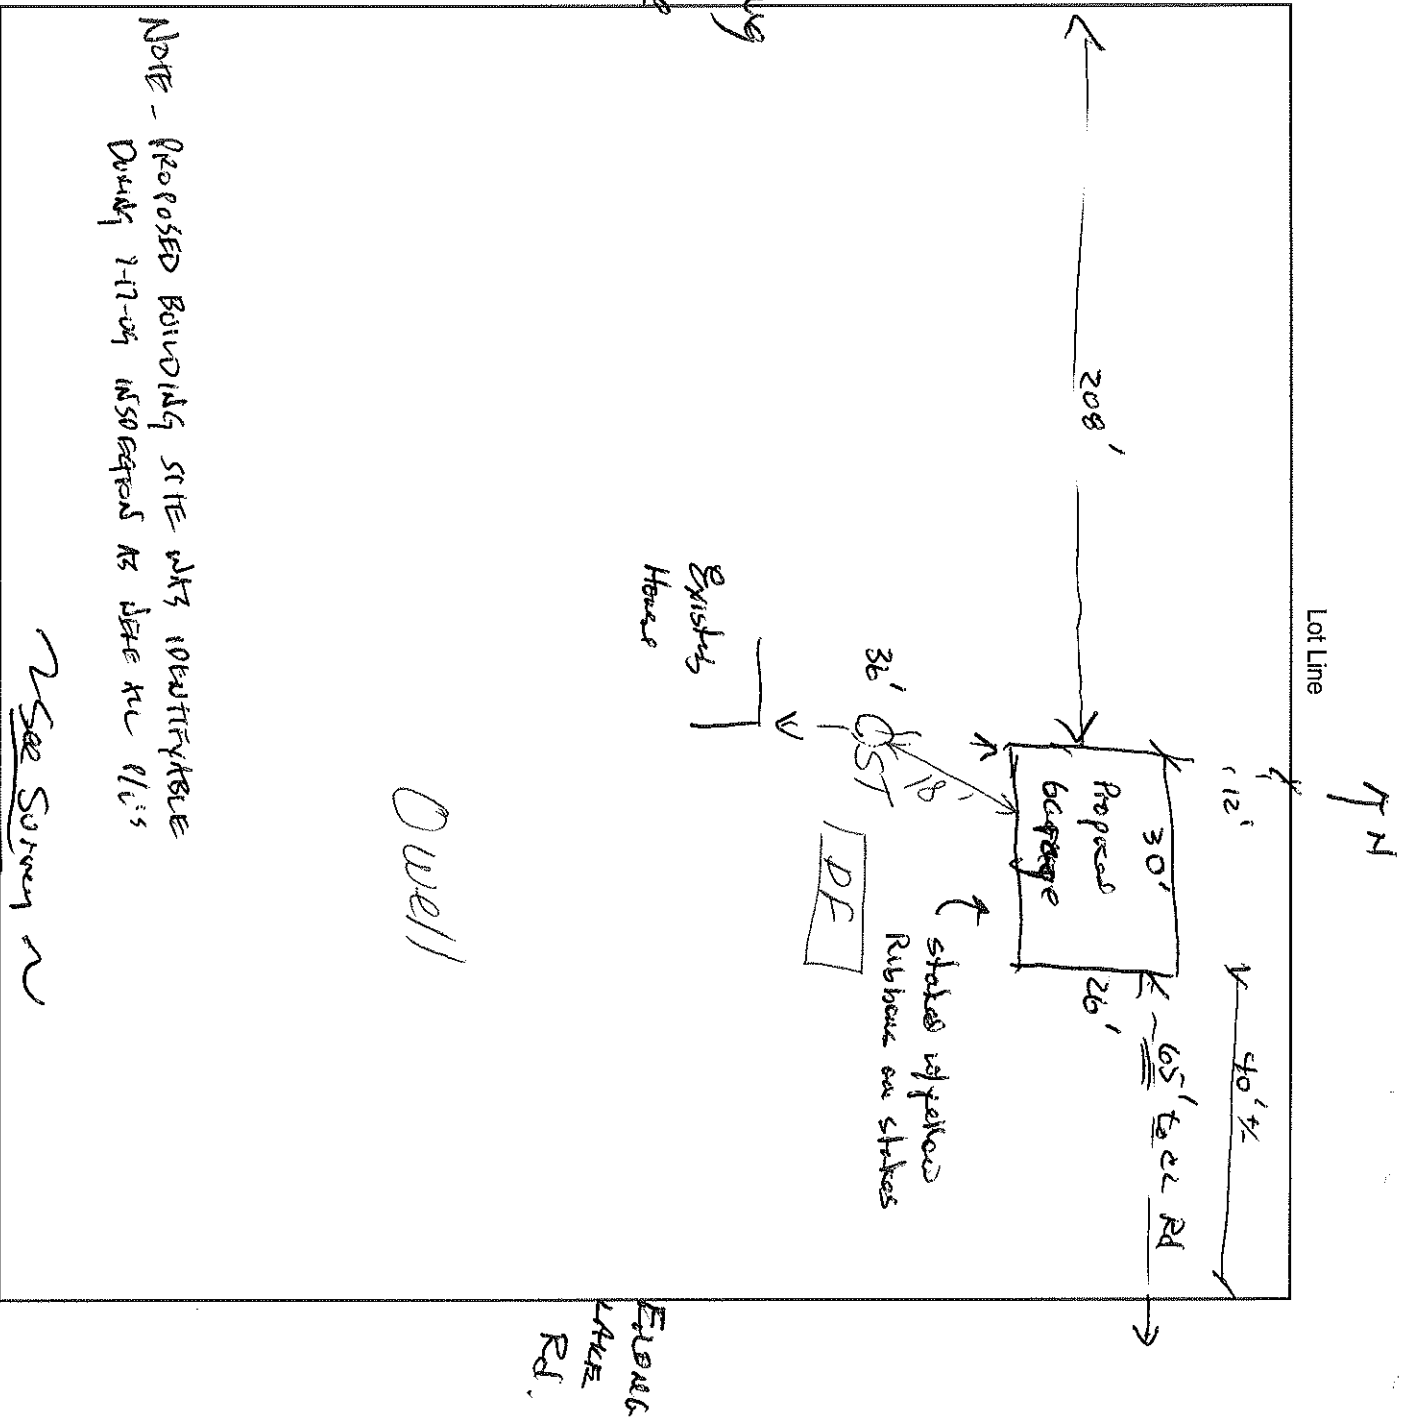 N
Lot Line
12'
40' +/-
30'
Proposed
Garage
26'
~65' to CL Rd
208'
staked w/yellow
Ribbons on stakes
18'
ST
36'
DF
Existing
House
O well
E LONG
LAKE
Rd.
NOTE - PROPOSED BUILDING SITE WAS IDENTIFYABLE
DURING INSPECTION AS WERE ALL P/L's
~ See Survey ~